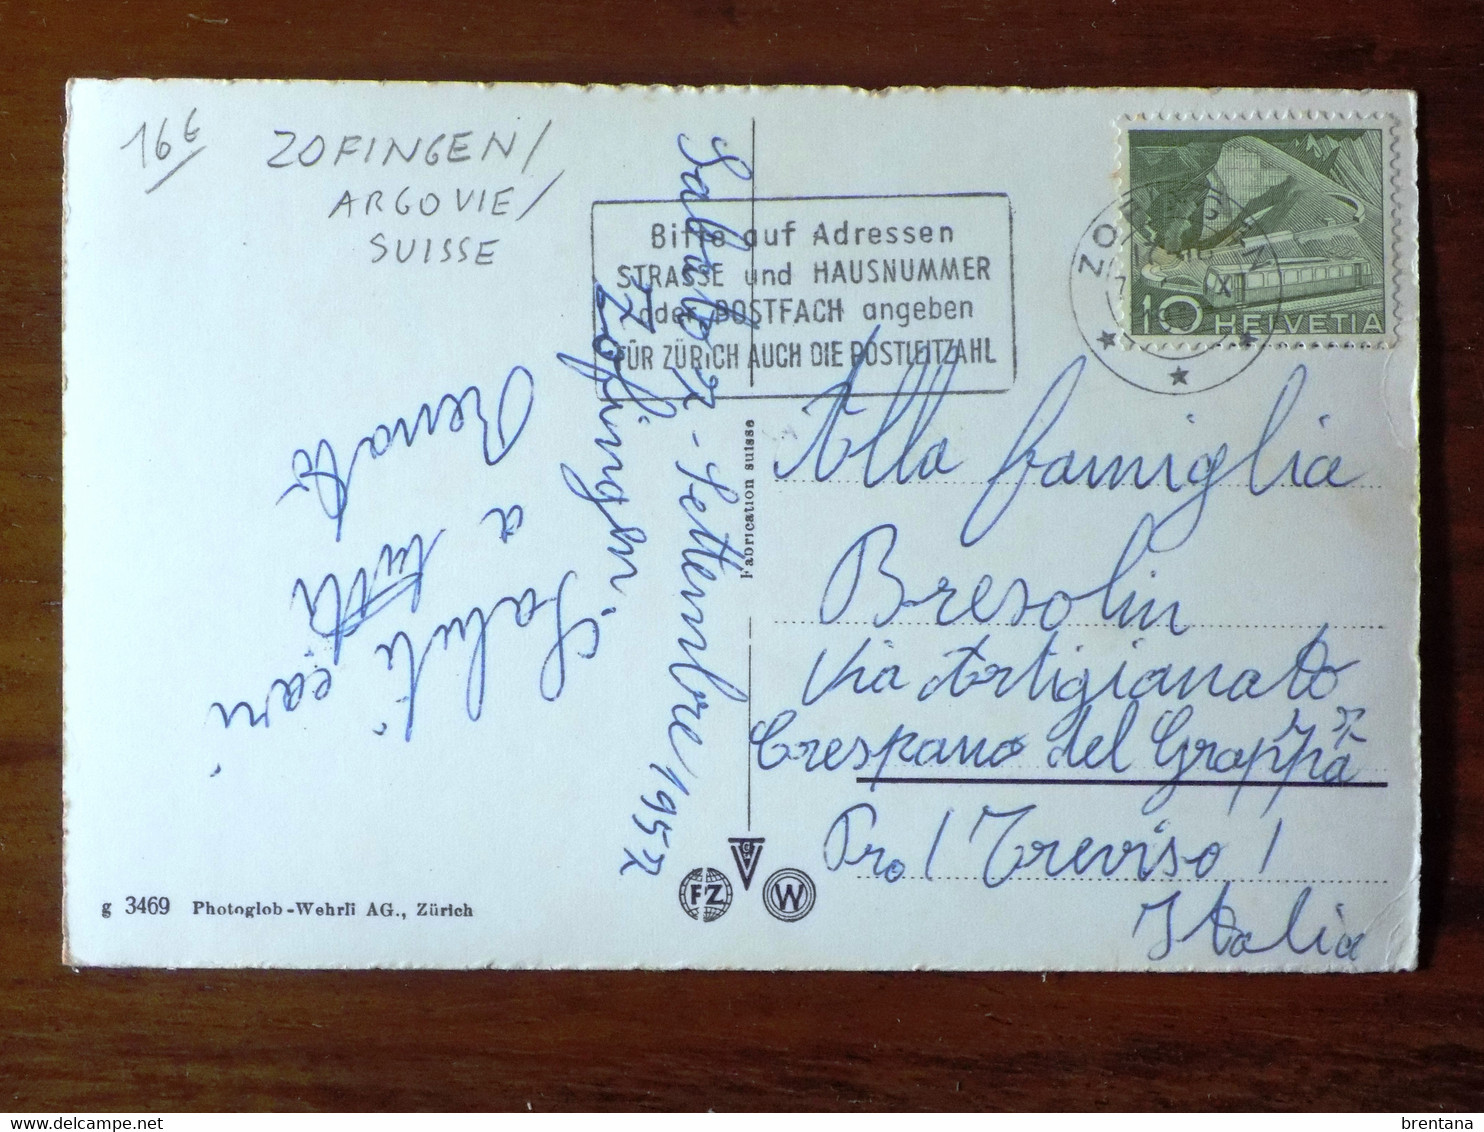 16 €
ZOFINGEN/
ARGOVIE/
SUISSE
Bitte auf Adressen
STRASSE und HAUSNUMMER
oder POSTFACH angeben
FÜR ZÜRICH AUCH DIE POSTLEITZAHL
ZOFINGEN
10 HELVETIA
Sabato 7 - Settembre 1957
Zofingen.
Saluti cari
a tutti
Renato
Fabrication suisse
Alla famiglia
Bresolin
Via Artigianato
Crespano del Grappa
Pro / Treviso /
Italia
g 3469 Photoglob-Wehrli AG., Zürich
FZ
W
brentana